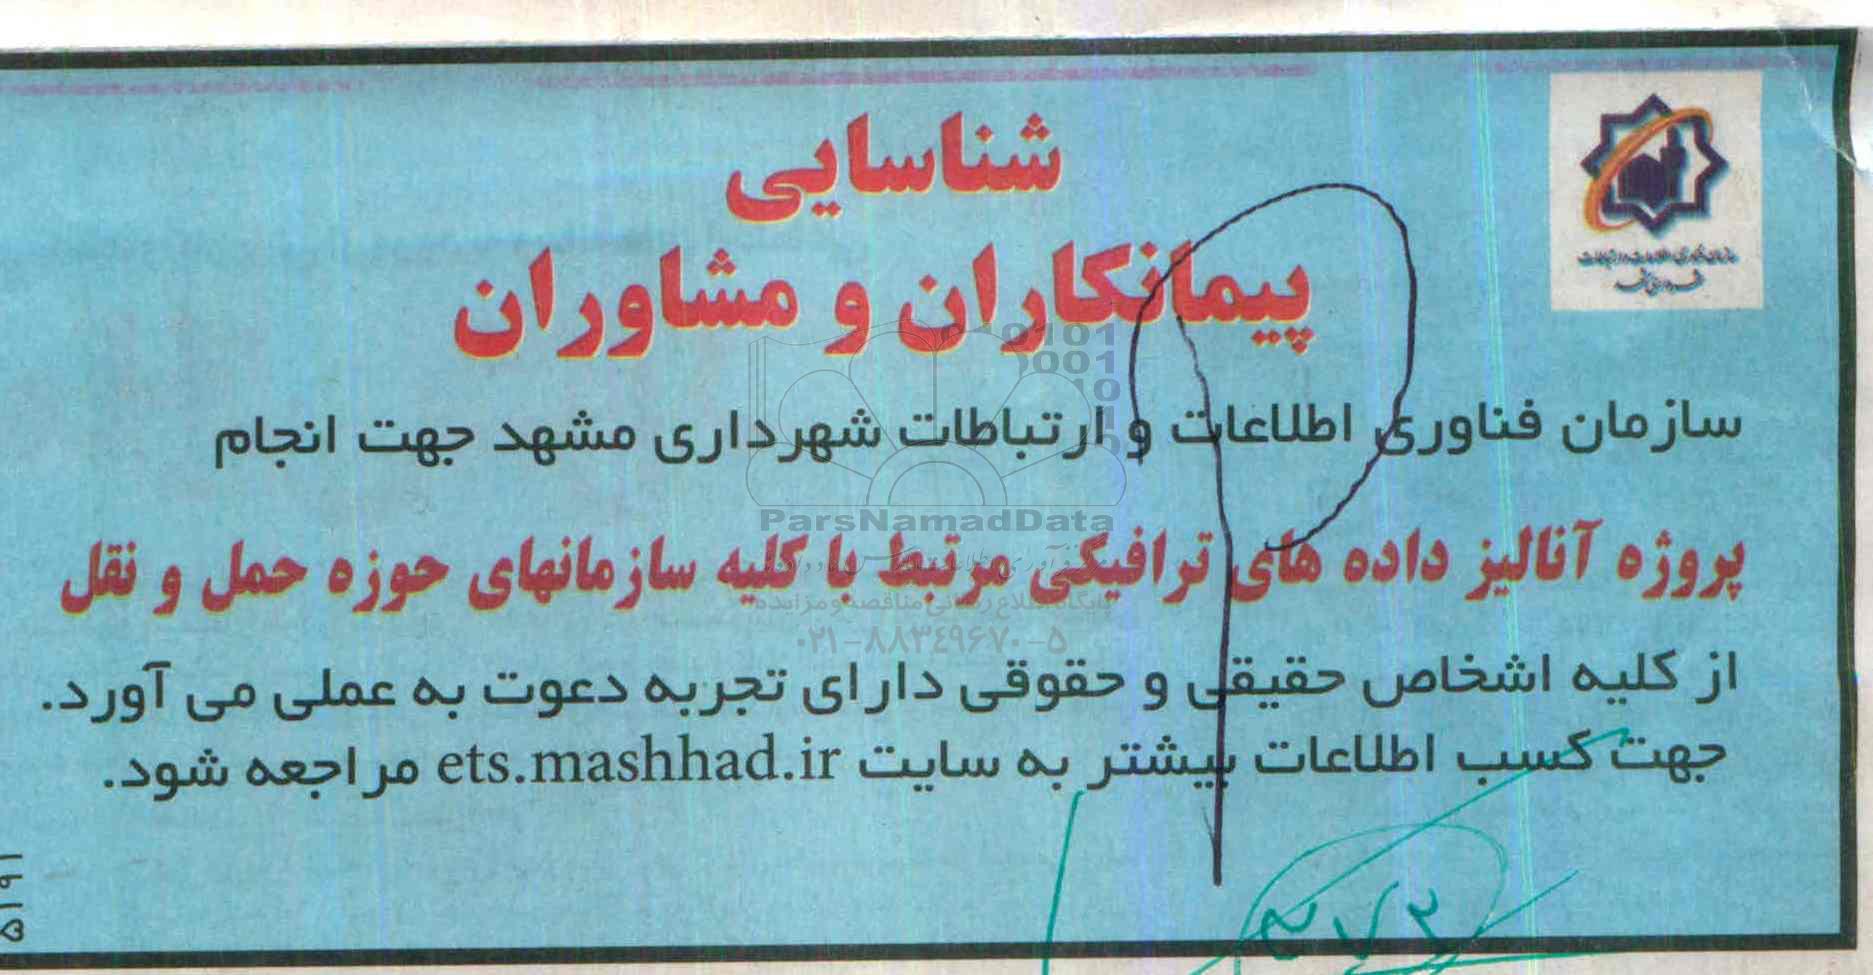 سازمان فناوری اطلاعات و ارتباطات
شهرداری مشهد
شناسایی
پیمانکاران و مشاوران
سازمان فناوری اطلاعات و ارتباطات شهرداری مشهد جهت انجام
پروژه آنالیز داده های ترافیکی مرتبط با کلیه سازمانهای حوزه حمل و نقل
از کلیه اشخاص حقیقی و حقوقی دارای تجربه دعوت به عملی می آورد.
جهت کسب اطلاعات بیشتر به سایت ets.mashhad.ir مراجعه شود.
ParsNamadData
پایگاه اطلاع رسانی مناقصه و مزایده
۰۲۱-۸۸۳۴۹۶۷۰-۵